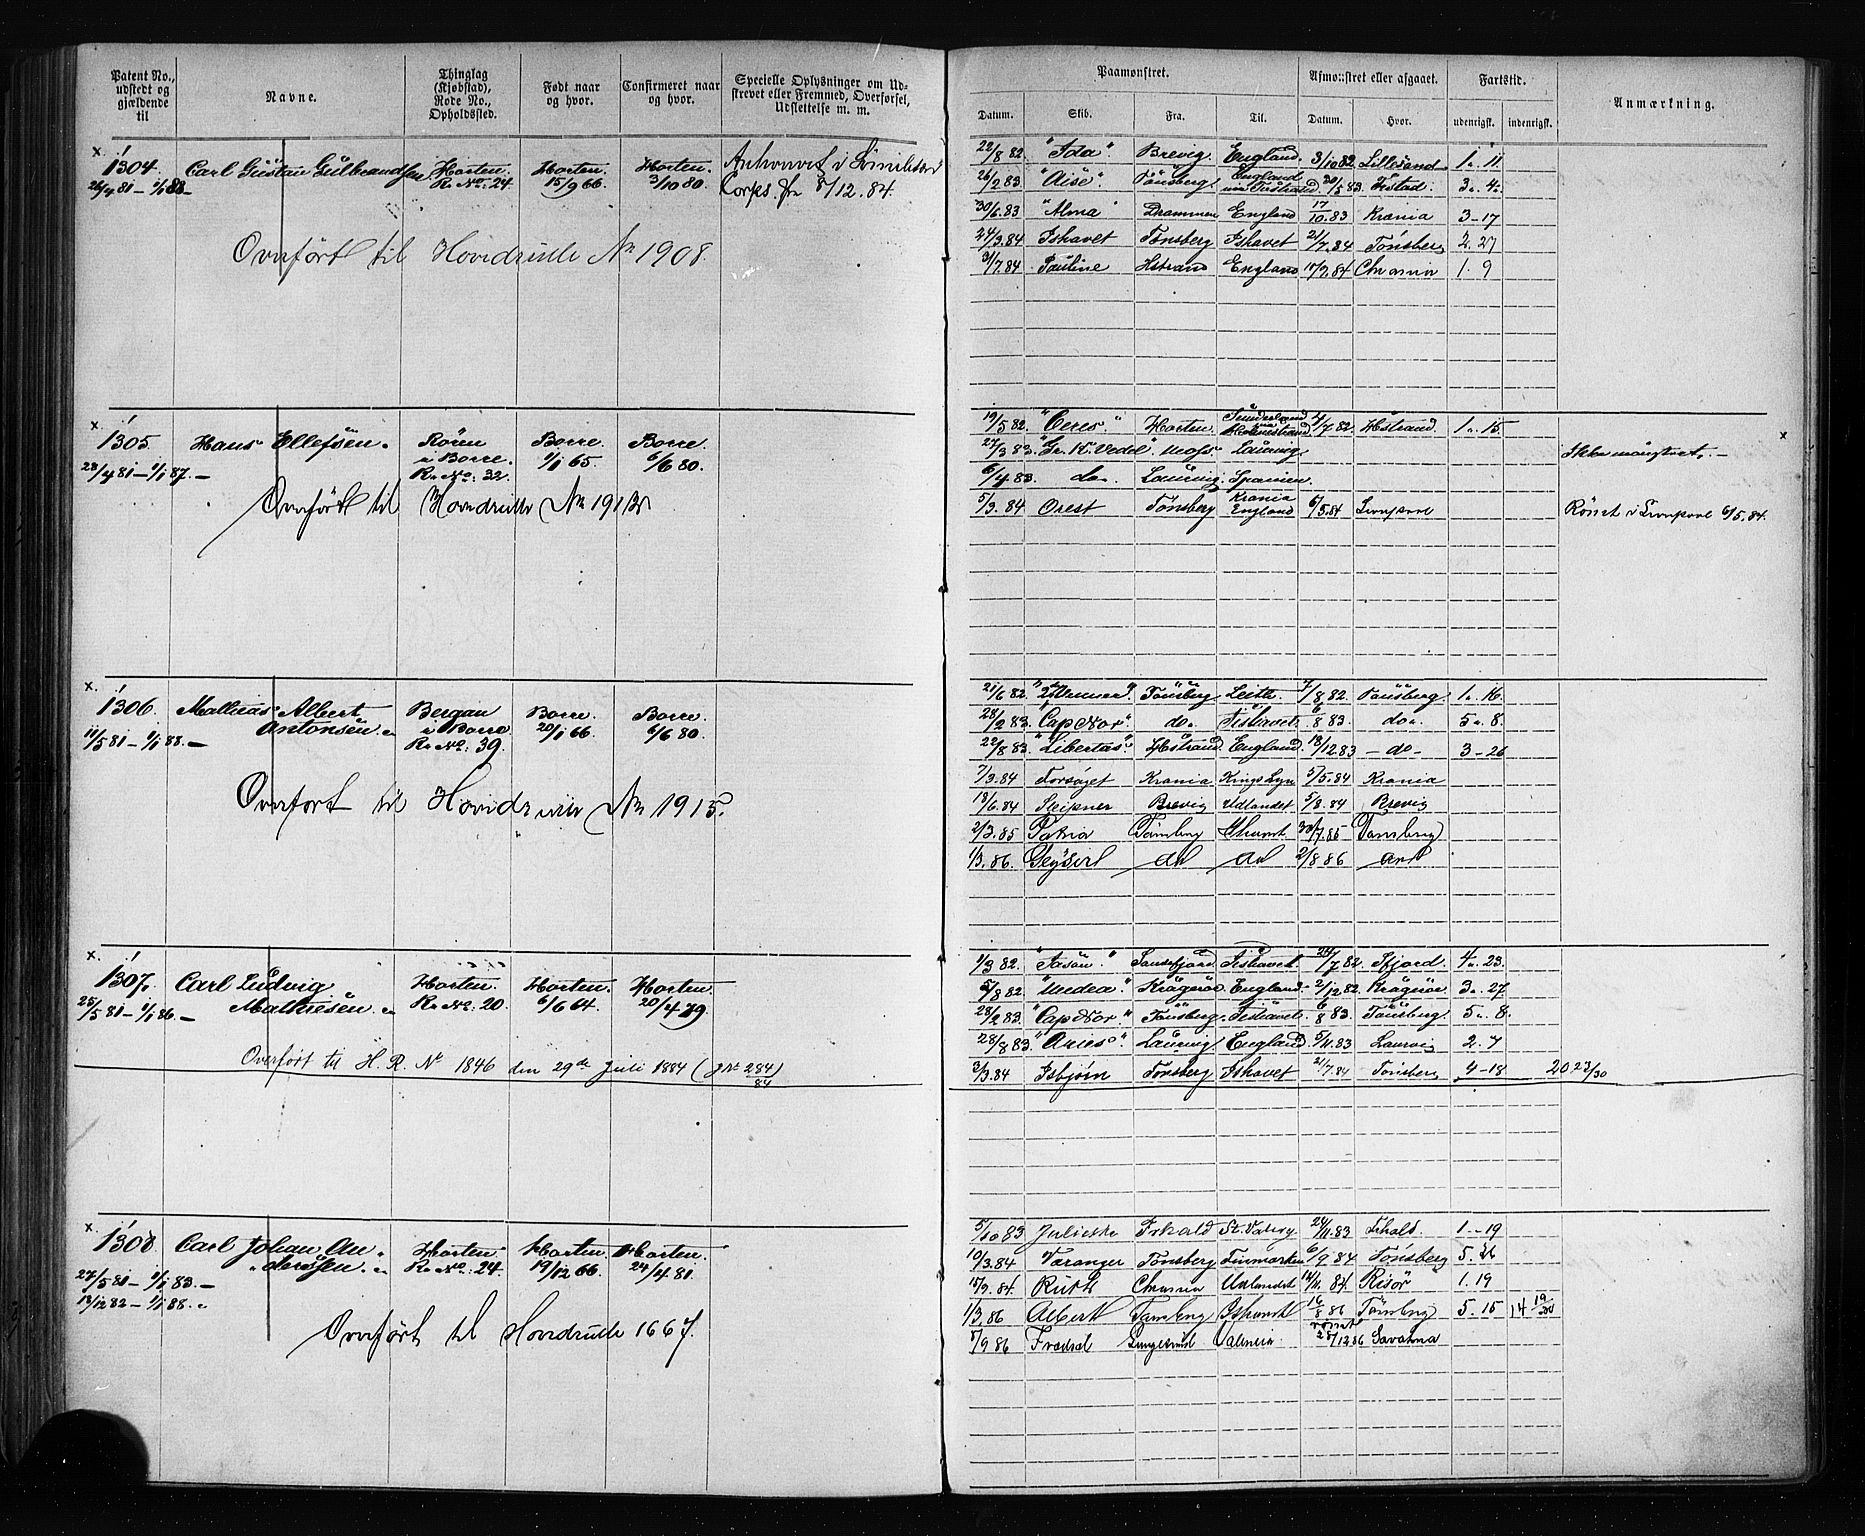 Patent No., udstedt og gjældende til
Navne.
Thinglag (Kjøbstad), Rode No., Opholdssted.
Født naar og hvor.
Confirmeret naar og hvor.
Specielle Oplysninger om Udstrevet eller Fremmed, Overførsel, Udslettelse m. m.
Paamønstret.
Afmønstret eller afgaaet.
Fartstid.
Anmærkning.
Datum. Skib. Fra. Til. Datum. Hvor. udenrigsk. indenrigsk.
1304. Carl Gustav Gulbrandsen Horten. Horten. Horten.
R. No: 24. 15/9 66. 3/10 80. Corps. 8/12.84.
Overført til Hovedrulle No 1908.
22/8 82. "Ida". Brevig. England. 3/10 82. Lillesand. 1. 11
26/2 83. Tønsberg. England 83.
30/6.83 "Alma" Drammen England 17/10.83 Krania 3-17
24/3.84 Ishavet Tønsberg Ishavet 21/7.84 Tønsberg 2. 27
31/7.84 Pauline Hstrand England Chrania 1. 9
1305. Hans Ellefsen. Røren Borre. Borre.
28/4 81 – 1/1 87. – i Borre. 9/1 65. 6/6 80.
R. No: 32.
Overført til Hovedrulle No 1913
19/5 82. "Ceres" Horten Holmestrand /7 82. Hstrand. 1. 15.
27/3 83. Vedel". Moss. Laurvig. Ikke mønstret. –
6/4 83. do. Laurvig. Spanien.
5/3. 84 Orest Tønsberg Krania England 6/5.84 Liverpool Rømt i Liverpool 6/5.84.
1306. Mathias Albert Bergan Borre. Borre.
11/5 81 – 1/1 88. – Antonsen. i Borre 20/1 66. 6/6 80.
R. No: 39.
Overført til Hovedrulle No 1915.
21/6 82. Tønsberg Leith. /8 82. Tønsberg. 1. 16.
28/2 83. "Cap Nor" do. Ishavet. 6/8 83. do. 5. 8.
22/8 83. "Libertas" Hstrand. England. 18/12.83 – do – 3-26
7/3.84 Forsøget Krania Kings Lyn 5/5.84 Krania
18/6.84 Sleipner Brevig Udlandet 5/8.84 Brevig
2/3.85 Tønsberg Ishavet 30/7.85 Tønsberg
1/3.86. Geysir do do 2/8 86 do
1307. Carl Ludvig Horten. Horten. Horten.
25/5 81 – 1/1 86. – Mathiesen. R. No: 20. 6/6 64. 20/4 79.
Overført til H. R. No 1846 den 29de Juli 1884 (J No 284/84)
1/3 82. "Jasøn." Sandefjord. Ishavet. /7 82. Sfjord. 4. 23.
/8 82. "Medea". Kragerøe. England. 2/12 82. Kragerøe. 3. 27
28/2 83. "Cap Nor." Tønsberg. Ishavet. 6/8 83. Tønsberg. 5. 8.
28/8 83. "Aries" Laurvig England 5/11.83 Laurvig 2. 7
2/3.84 Isbjørn Tønsberg Ishavet 21/7.84 Tønsberg 4-18 20 23/30
1308. Carl Johan An- Horten. Horten. Horten.
27/5 81 – 1/1 83. – dersen. R. No: 24. 19/12 66. 24/4 81.
13/12 82 – 1/1 88.
Overført til Hovedrulle 1667.
5/10 83 Frhald /11.83 Frhald. 1. -19
10/3.84 Varanger Tønsberg Finmarken 6/9.84 Tønsberg
Ruth Chrania Udlandet 14/11. 84. Risør 1. 19
1/3.86 Albert Tønsberg Ishavet 16/8 86 Tønsberg 5. 15 14 19/30
/9 86 rømt 28/12.86 Savanna